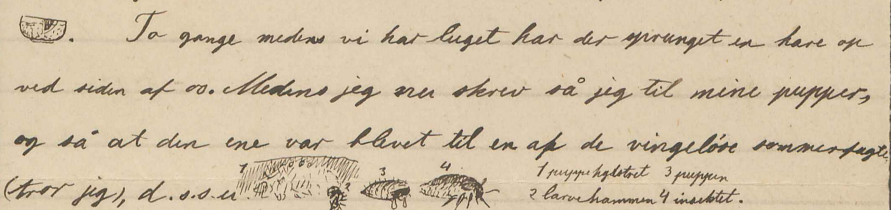 To gange medens vi har luget har der sprunget en hare op
ved siden af os. Medens jeg nu skrev så jeg til mine pupper,
og så at den ene var blevet til en af de vingelöse sommerfugle
(tror jeg), d.s.s.u. 1 2 3 4 1 puppehylstret 3 puppen
2 larvehammen 4 insektet.